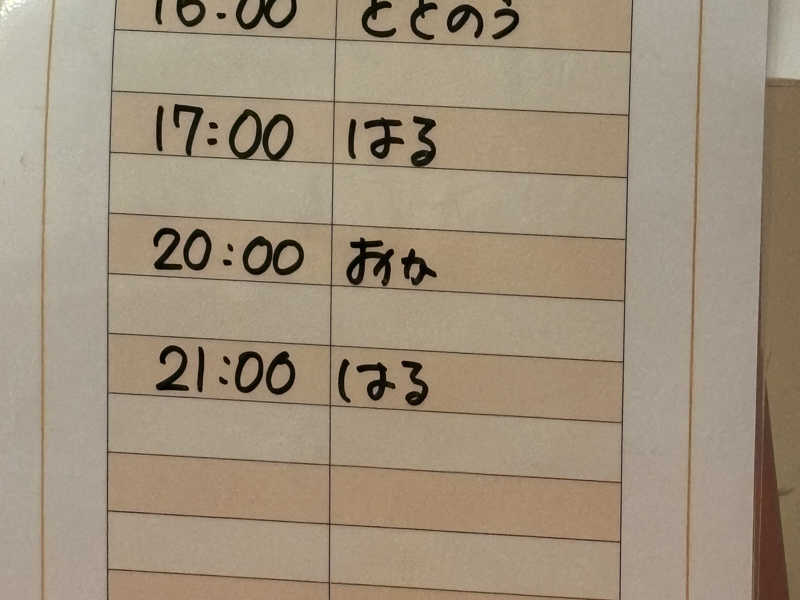 16:00 ととのう
17:00 はる
20:00 おか
21:00 はる